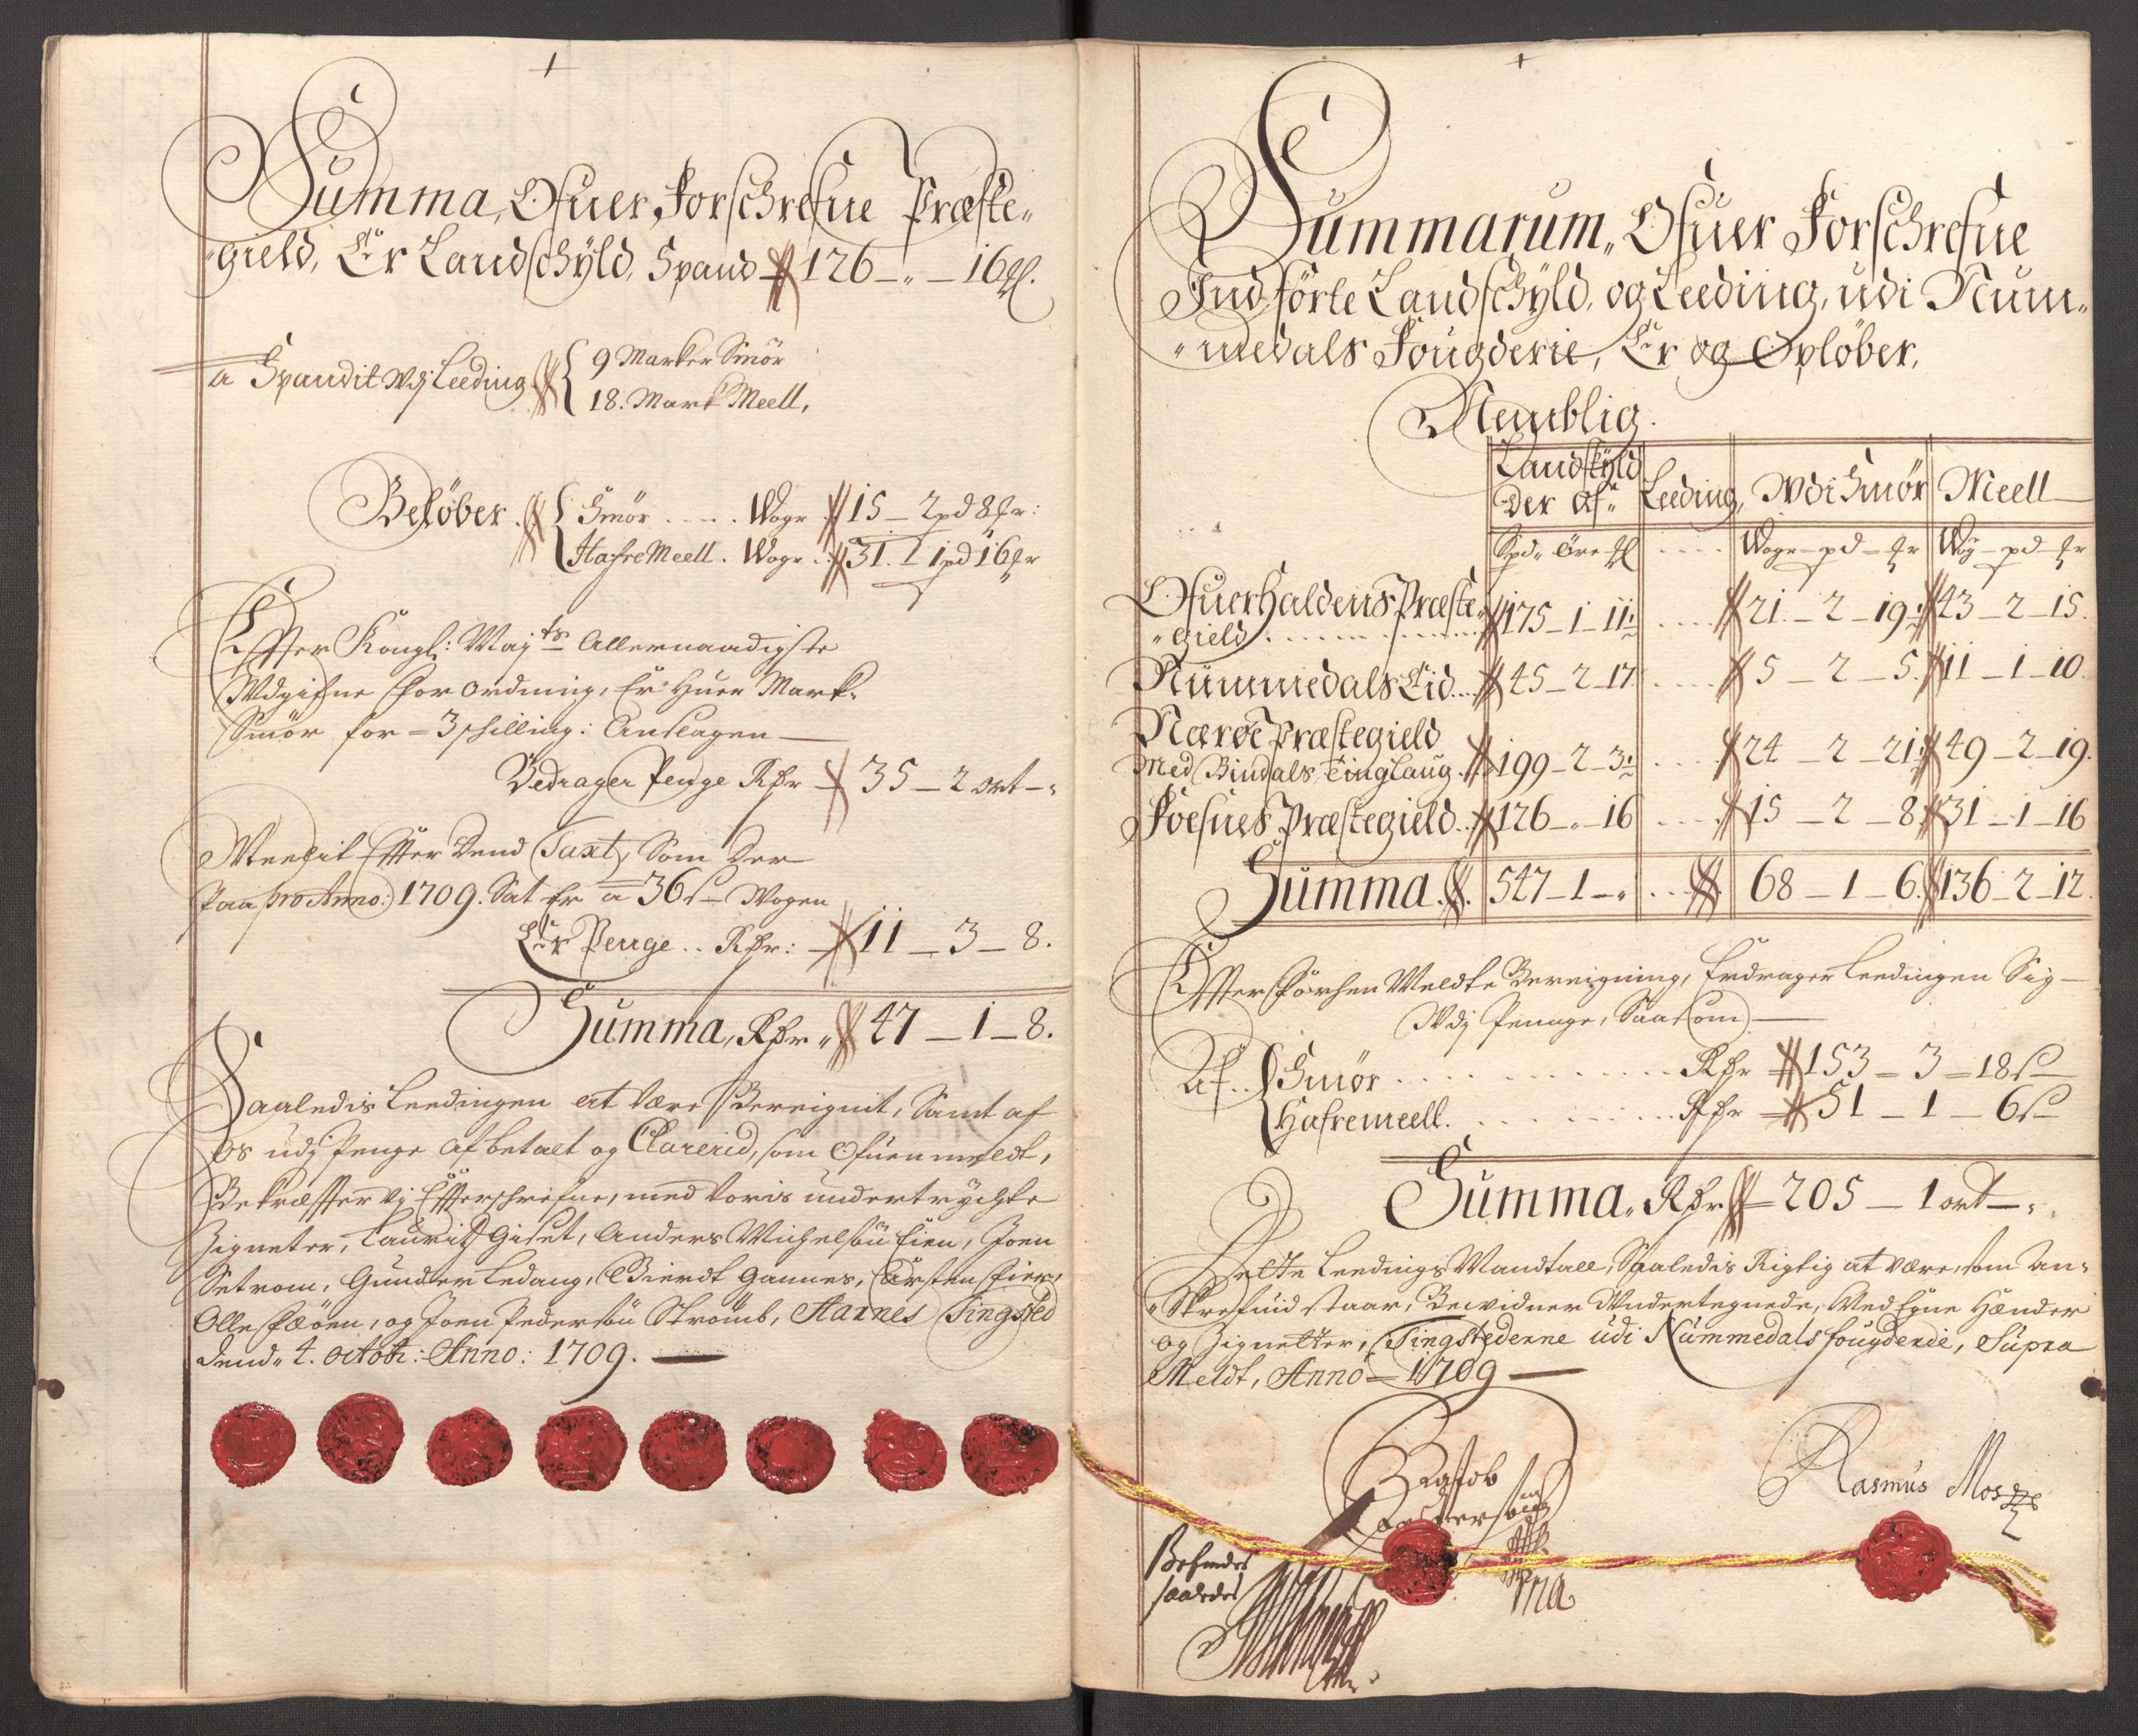 Summa, Ofuer Forschrefne Præste„
„gield, Er Landschyld, Spand 126 – „ – 16
a Spandit Udj Leeding { 9 Marker Smör
18. Mark Meell,
Beløber { Smör . . . . . Woger 15 – 2 pd 8
Hafre Meell . Woger . . 31. – 1 pd 16
Effter Kongl: Mayts Allernaadigste
Udgifne Forordning, Er Huer Mark
Smör for = 3 schilling: Anslagen —
Bedrager Penge Rdr 35 – 2 ort – „
Meelit Effter Dend Taxt, Som Der
Paa pro Anno: 1709. Sat Er a 36 s Wogen
Er Penge . . Rdr: 11 – 3 – 8.
Summa, Rdr „ 47 – 1 – 8.
Saaledis Leedingen at Være Bereignit, Samt af
os udj Penge Afbetalt og Clarerid, som Ofuenmeldt,
Bekræffter Vj Effterschrefne, med voris undertrychte
Zigneter, Laurits Giset, Anders Michelsøn Eien, Joen
Setrom, Gunder Ledang, Bierdt Gannes, Carsten Eier,
Olle Fæøen, og Joen Pedersøn Strømb, Aarnes Tingsted
dend„ 4. octobr: Anno: 1709. —
Summarum„ Ofuer Forschrefne
Indførte Landschyld, og Leeding, udi Num„
„medals Fougderie, Er og Opløber,
Nemblig.
Landskyld Der Af„ Leeding, Udi Smör Meell
Spd„ Øre . . . . Woger – pd – Wog – pd
Ofuerhaldens Præste„
„gield . . . . . . 175 – 1 – 11 . . . . 21. – 2 – 19 43 – 2 – 15.
Nummedals Eid . . . 45 – 2 – 17 . . . . 5 – 2 – 5. 11 – 1 – 10.
Nærøe Præstegield
Med Bindals Tinglaug . 199 – 2 – 3 . . . . 24 – 2 – 21 49 – 2 – 19.
Foesnes Præstegield . . 126 – „ – 16 . . . . 15 – 2 – 8 31 – 1 – 16
Summa . 547 – 1 – „ . . . 68 – 1 – 6. 136 – 2 – 12.
Effter Forhen Meldte Bereigning, Erdrager Leedingen Sig —
Udj Penge, Saasom —
Af . . { Smör . . . . . . . . . Rdr 153 – 3 – 18 s
Hafremeell. . . . . . . . . Rdr 51 – 1 – 6 s
Summa„ Rdr 205 – 1 ort – „
Dette Leedings Mandtall, Saaledis Rigtig at være, som An„
„Skrefuid staar, Bewidner Undertegnede, Med Egne Hænder
og Zignetter, Tingstederne udi Nummedals fougderie, Supra
Meldt, Anno = 1709 —
Rasmus
Befindes
saaledes